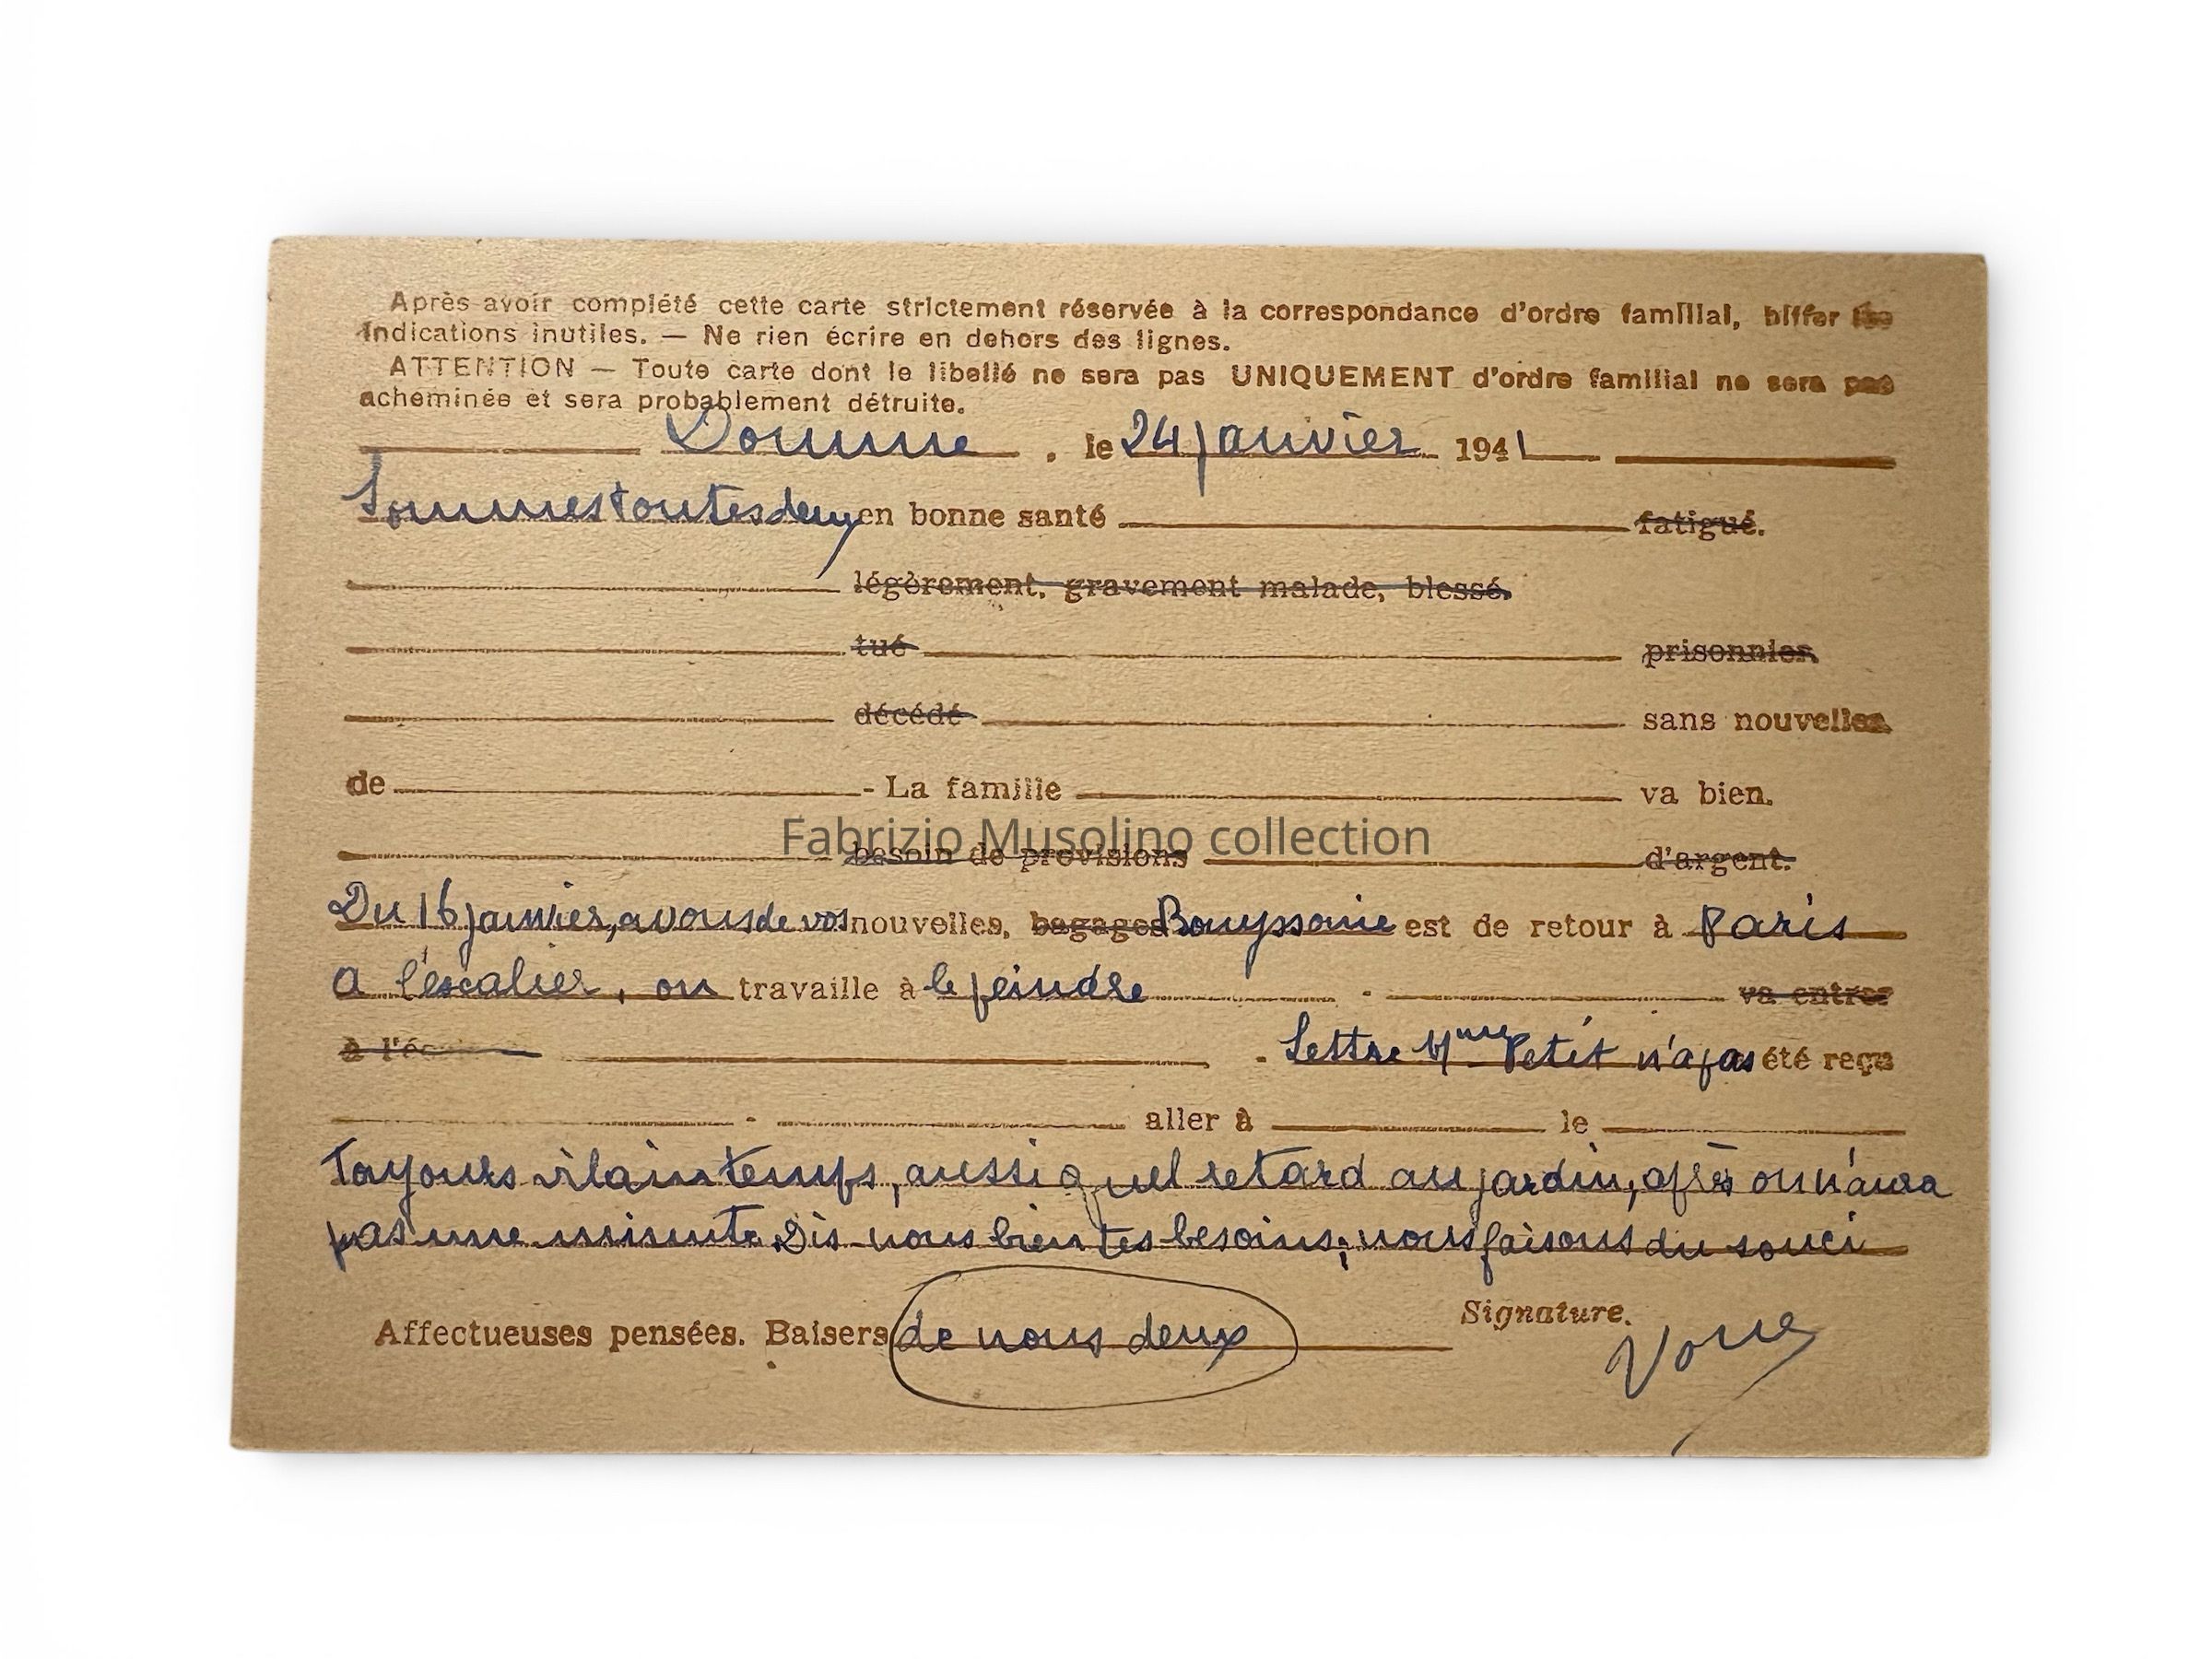 Après avoir complété cette carte strictement réservée à la correspondance d'ordre familial, biffer les
indications inutiles. — Ne rien écrire en dehors des lignes.
ATTENTION — Toute carte dont le libellé ne sera pas UNIQUEMENT d'ordre familial ne sera pas
acheminée et sera probablement détruite.
Domme, le 24 janvier 1941
Sommes toutes deux en bonne santé fatigué.
légèrement, gravement malade, blessé.
tué prisonnier.
décédé sans nouvelles
de - La famille va bien.
Fabrizio Musolino collection
besoin de provisions d'argent.
Du 16 janvier, avons de vos nouvelles, bagages Bouyssonie est de retour à Paris
a l'escalier, on travaille à le peindre - va entrer
à l'é - Lettre Mme Petit n'a pas été reçu
- aller à le
Toujours vilain temps, aussi quel retard au jardin, après on n'aura
pas une minute. Dis nous bien tes besoins, nous faisons du souci
Signature.
Affectueuses pensées. Baisers de nous deux